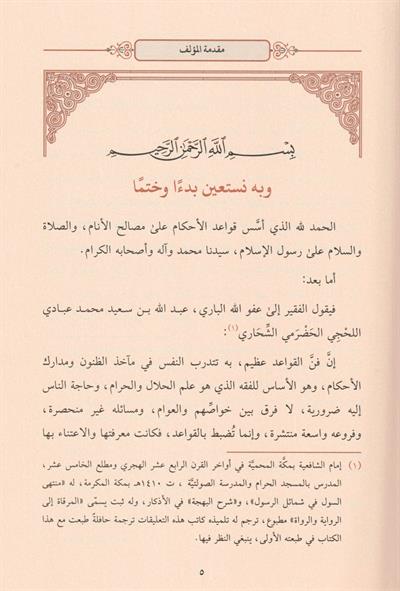 مقدمة المؤلف
بسم الله الرحمن الرحيم
وبه نستعين بدءًا وختمًا
الحمد لله الذي أسَّس قواعد الأحكام علىٰ مصالح الأنام، والصلاة
والسلام علىٰ رسول الإسلام، سيدنا محمد وآله وأصحابه الكرام.
أما بعد:
فيقول الفقير إلىٰ عفو الله الباري، عبد الله بن سعيد محمد عبادي
اللحْجي الحَضْرَمي الشِّحَاري(١):
إنَّ فنَّ القواعد عظيم، به تتدرب النفس في مآخذ الظنون ومدارك
الأحكام، وهو الأساس للفقه الذي هو علم الحلال والحرام، وحاجة الناس
إليه ضرورية، لا فرق بين خواصِّهم والعوام، ومسائله غير منحصرة،
وفروعه واسعة منتشرة، وإنما تُضبط بالقواعد، فكانت معرفتها والاعتناء بها
(١) إمام الشافعية بمكَّة المحميَّة في أواخر القرن الرابع عشر الهجري ومطلع الخامس عشر،
المدرس بالمسجد الحرام والمدرسة الصولتيَّة ، ت ١٤١٠هـ بمكة المكرمة، له «منتهى
السول في شمائل الرسول»، و«شرح البهجة» في الأذكار، وله ثبت يسمّى «المرقاة إلى
الرواية والرواة» مطبوع، ترجم له تلميذه كاتب هذه التعليقات ترجمة حافلةً طبعت مع هذا
الكتاب في طبعته الأولى، ينبغي النظر فيها.
٥